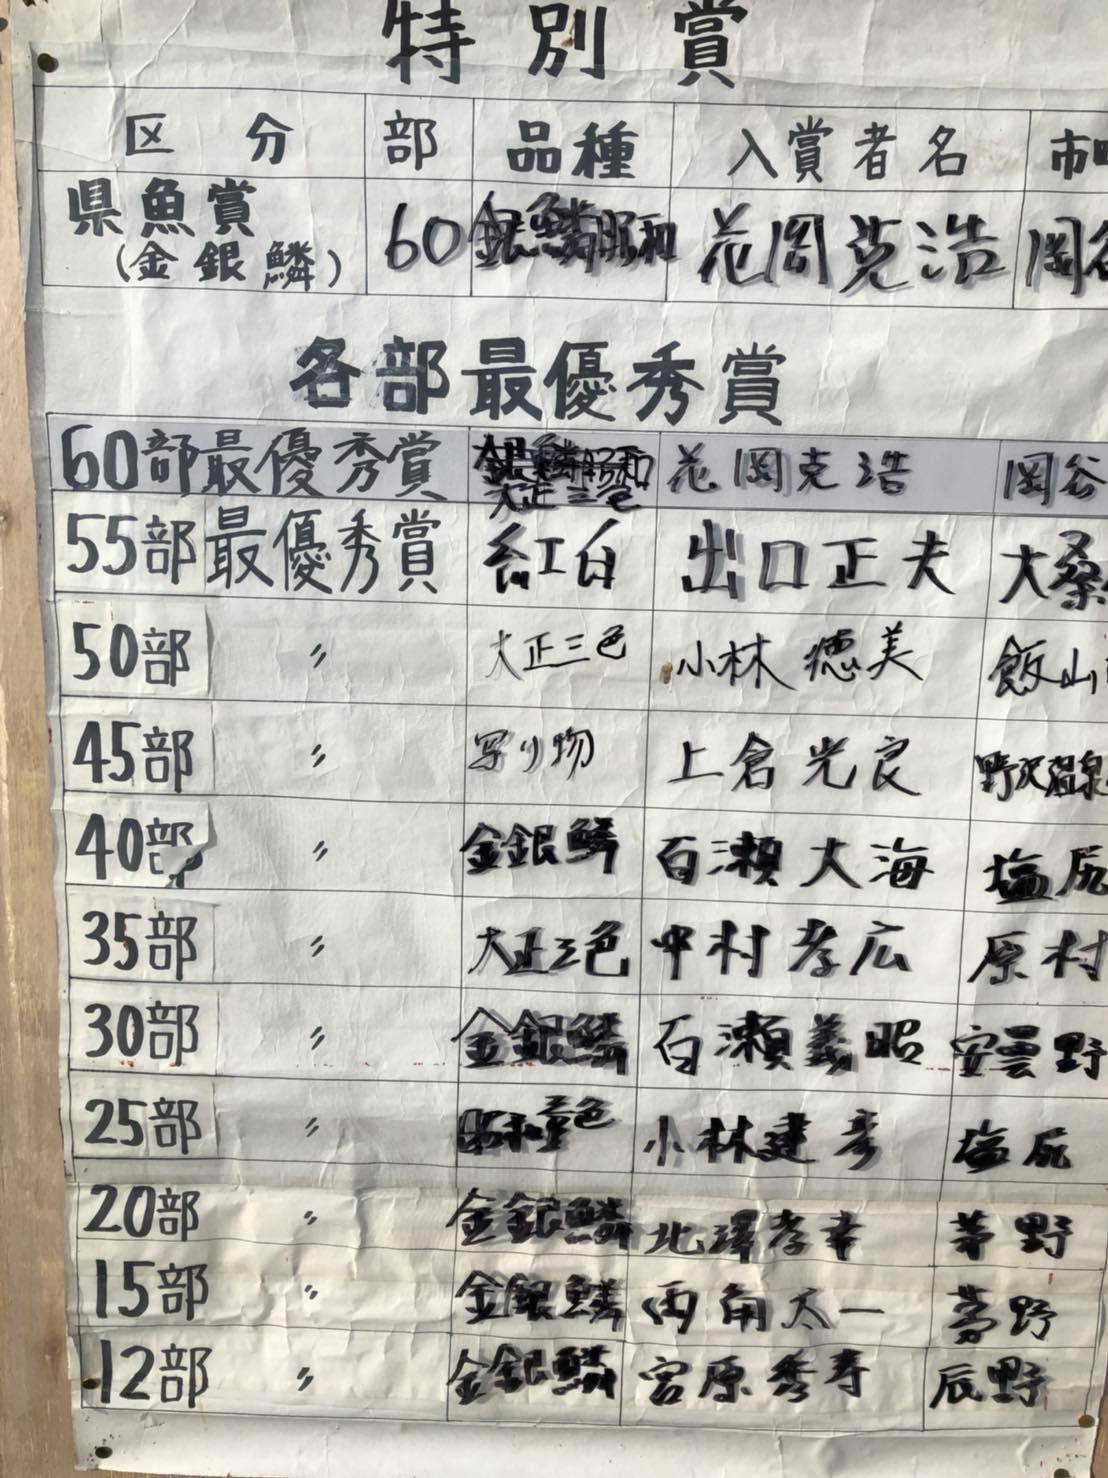 特別賞
区分 部 品種 入賞者名 市町
県魚賞 60 銀鱗昭和 花岡克浩 岡谷
(金銀鱗)
各部最優秀賞
60部最優秀賞 花岡克浩 岡谷
大正三色
55部最優秀賞 紅白 出口正夫 大桑
50部 〃 大正三色 小林徳美 飯山
45部 〃 写り物 上倉光良 野沢温泉
40部 〃 金銀鱗 百瀬大海 塩尻
35部 〃 大正三色 中村孝広 原村
30部 〃 金銀鱗 百瀬義昭 安曇野
25部 〃 小林建彦 塩尻
20部 〃 金銀鱗 北澤孝幸 茅野
15部 〃 金銀鱗 両角太一 茅野
12部 〃 金銀鱗 宮原秀寿 辰野